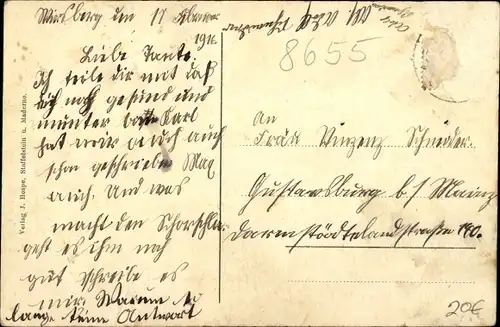 Wirsberg den 17
1916.
Liebe Tante.
Ich teile dir mit daß
ich noch gesund und
munter bin Karl
hat mir auch
schon geschrieben Max
auch. Und was
macht den Schorschla
geht es ihm noch
gut schreibe es
mir Warum so
lange keine Antwort
Verlag J. Bospe, Staffelstein u. Maderno.
8655
An
Frau Vinzenz Schneider.
Gustavsburg b/ Mainz
Darmstädterlandstraße 190.
20€